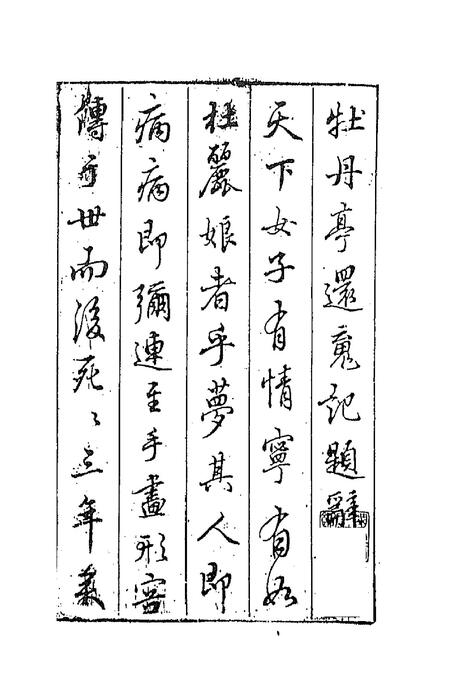 牡丹亭還魂記題辭
天下女子有情寧有如
杜麗娘者乎夢其人即
病病即彌連至手畫形容
傳于世而後死〻三年矣